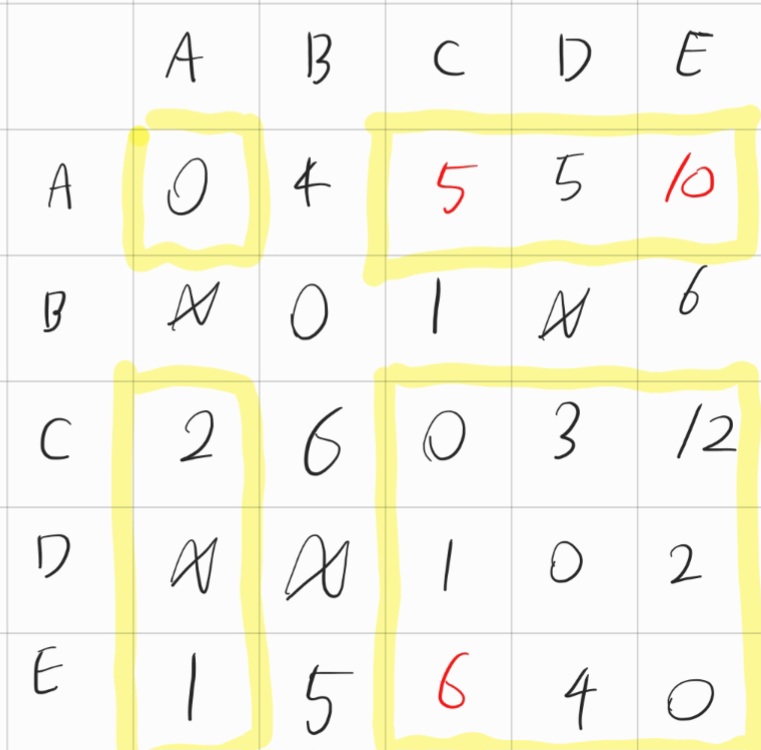 A B C D E
A 0 4 5 5 10
B ∞ 0 1 ∞ 6
C 2 6 0 3 12
D ∞ ∞ 1 0 2
E 1 5 6 4 0